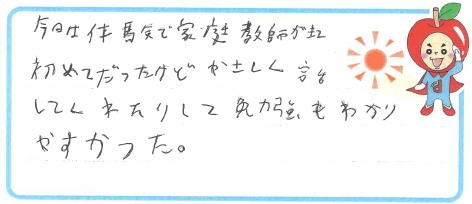 今日は体験で家庭教師が
初めてだったけど やさしく 話
してくれたりして 勉強も わかり
やすかった。
d